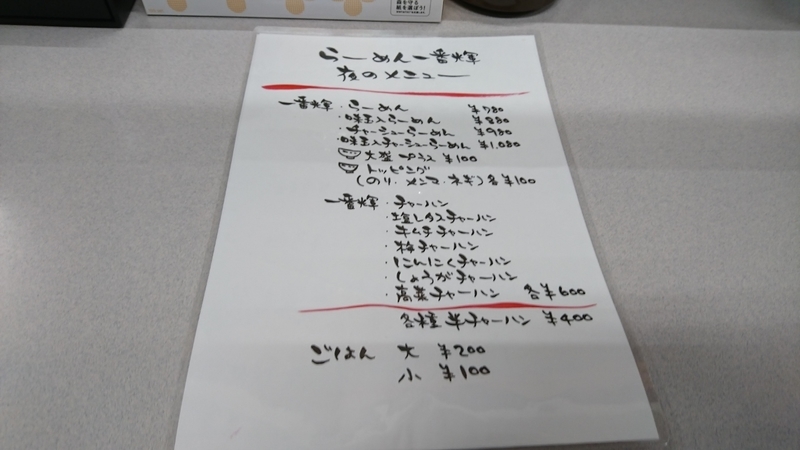 森を守る
紙を選ぼう!
らーめん一番輝
夜のメニュー
一番輝・らーめん ¥780
・味玉入らーめん ¥880
・チャーシューらーめん ¥980
・味玉入チャーシューらーめん ¥1,080
大盛プラス ¥100
トッピング
(のり・メンマ・ネギ)各¥100
一番輝・チャーハン
・塩レタスチャーハン
・キムチチャーハン
・梅チャーハン
・にんにくチャーハン
・しょうがチャーハン
・高菜チャーハン 各¥600
各種半チャーハン ¥400
ごはん 大 ¥200
小 ¥100